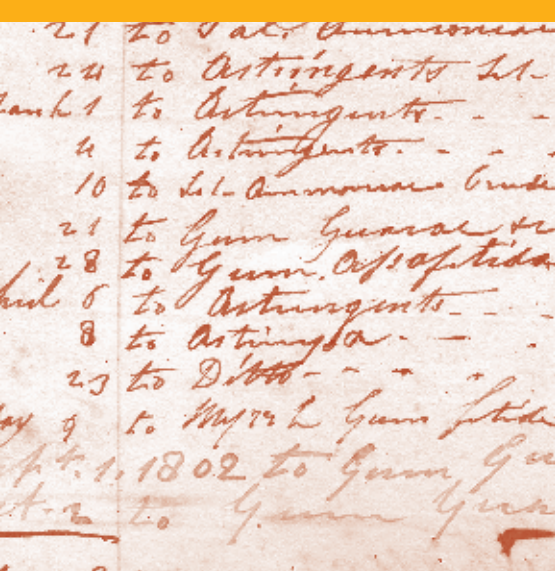 21 to Sal. Ammoniac
24 to Astringents Sal-
1 to Astringents - -
4 to Astringents - - -
10 to Sal- Ammoniac Crude
21 to Gum Guaiac
28 to Gum Assafetida
6 to Astringents - -
8 to Astringa - - -
23 to Ditto - - - -
9 to Myrrh Gum fetida
1, 1802 to Gum
2 to Gum